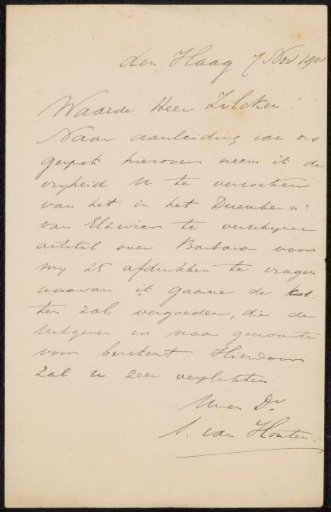 den Haag 7 Nov 1901
Waarde Heer Zilcken!
Naar aanleiding van ons
gesprek hierover neem ik de
vrijheid U te verzoeken
van het in het December no:
van Elsevier te verschijnen
artikel over Barbara voor
my 25 afdrukken te vragen
waarvan ik gaarne de kos-
ten zal vergoeden, die de
Uitgever er naar gewoonte
voor berekent. Hierdoor
zal u zeer verplichten
Uwen Dr
S. van Houten